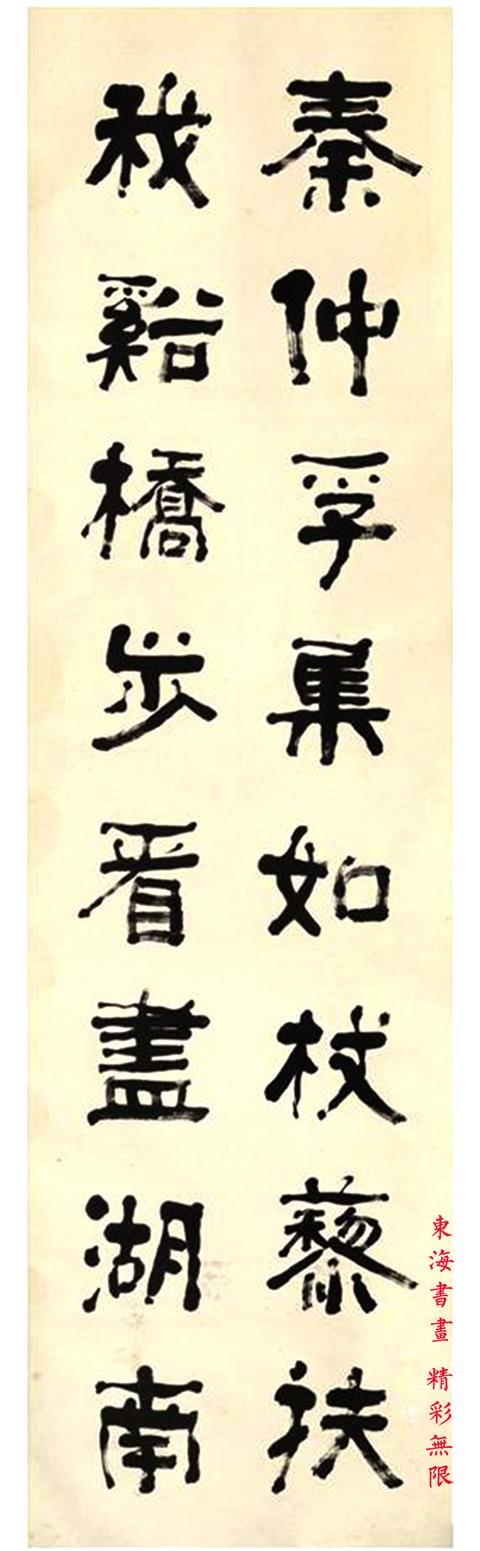 秦仲孚集如杖藜扶
我谿橋步看盡湖南
東海書畫 精彩無限